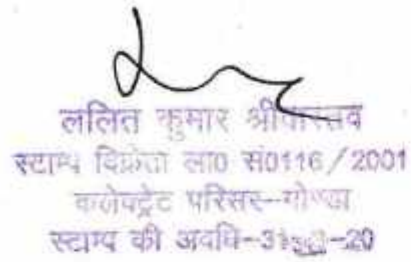 ललित कुमार श्रीवास्तव
स्टाम्प विक्रेता ला0 सं0116/2001
कलेक्ट्रेट परिसर--गोण्डा
स्टाम्प की अवधि-31 -20